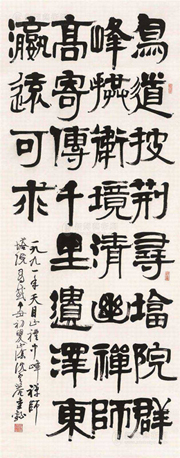 鳥道披荆尋塔院群
峰拱衛境清幽禪師
高寄傳千里遺澤東
瀛遠可求
一九九一年天目山禮中峰禪師
塔院